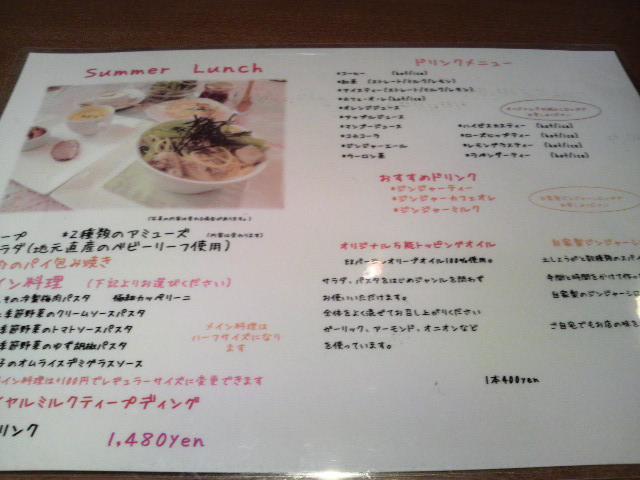 Summer Lunch
(写真の内容は変わる場合があります。)
ープ *2種類のアミューズ (内容は変わります)
ラダ(地元直産のベビーリーフ使用)
のパイ包み焼き
イン料理 (下記よりお選びください)
その冷製梅肉パスタ 極細カッペリーニ
季節野菜のクリームソースパスタ
季節野菜のトマトソースパスタ
季節野菜のゆず胡椒パスタ
子のオムライスデミグラスソース
メイン料理は
ハーフサイズになり
ます
イン料理は+100円でレギュラーサイズに変更できます
イヤルミルクティープディング
リンク
1,480yen
ドリンクメニュー
*コーヒー (hot/ice)
*紅茶 (ストレート/ミルク/レモン)
*アイスティー(ストレート/ミルク/レモン)
*カフェ・オ・レ(hot/ice)
*オレンジジュース
*アップルジュース
*マンゴージュース
*コカコーラ
*ジンジャーエール
*ウーロン茶
*ハイビスカスティー (hot/ice)
*ローズヒップティー (hot/ice)
*レモングラスティー (hot/ice)
*ラベンダーティー (hot/ice)
おすすめドリンク
*ジンジャーティー
*ジンジャーカフェオレ
*ジンジャーミルク
オリジナル万能トッピングオイル
EXバージンオリーブオイル100%使用。
サラダ、パスタをはじめジャンルを問わず
お使いいただけます。
全体をよく混ぜてお召し上がりください
ガーリック、アーモンド、オニオンなど
を使っています。
1本400yen
自家製ジンジャーシ
土しょうがと数種類のスパイ
手間と時間をかけて作っ
自家製のジンジャーシロ
ご自宅でもお店の味を